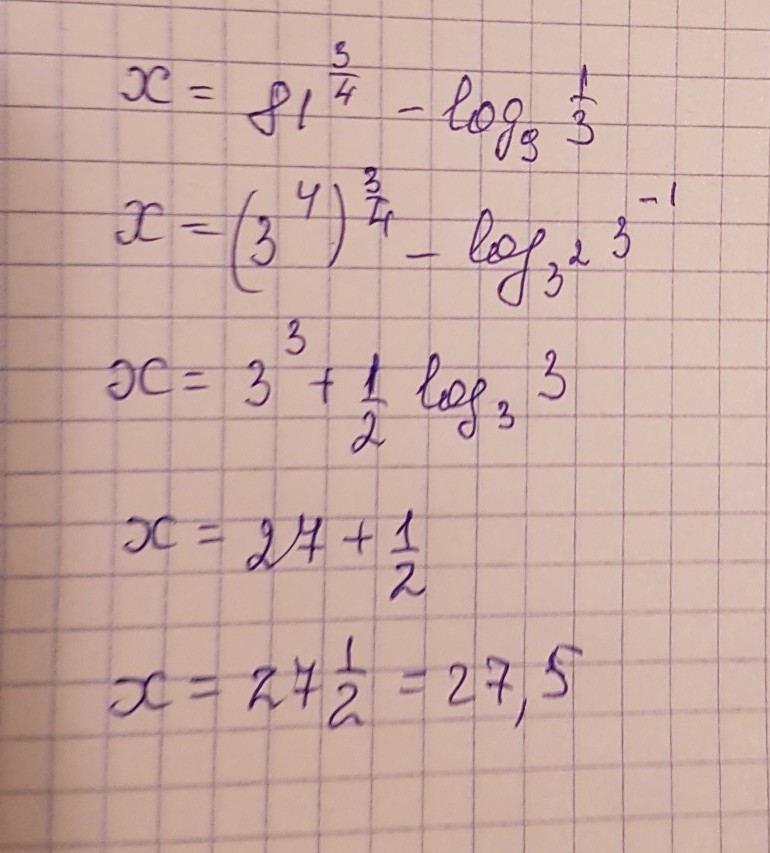 x = 81^(3/4) - log₉ 1/3
x = (3⁴)^(3/4) - log_(3²) 3⁻¹
x = 3³ + 1/2 log₃ 3
x = 27 + 1/2
x = 27 1/2 = 27,5